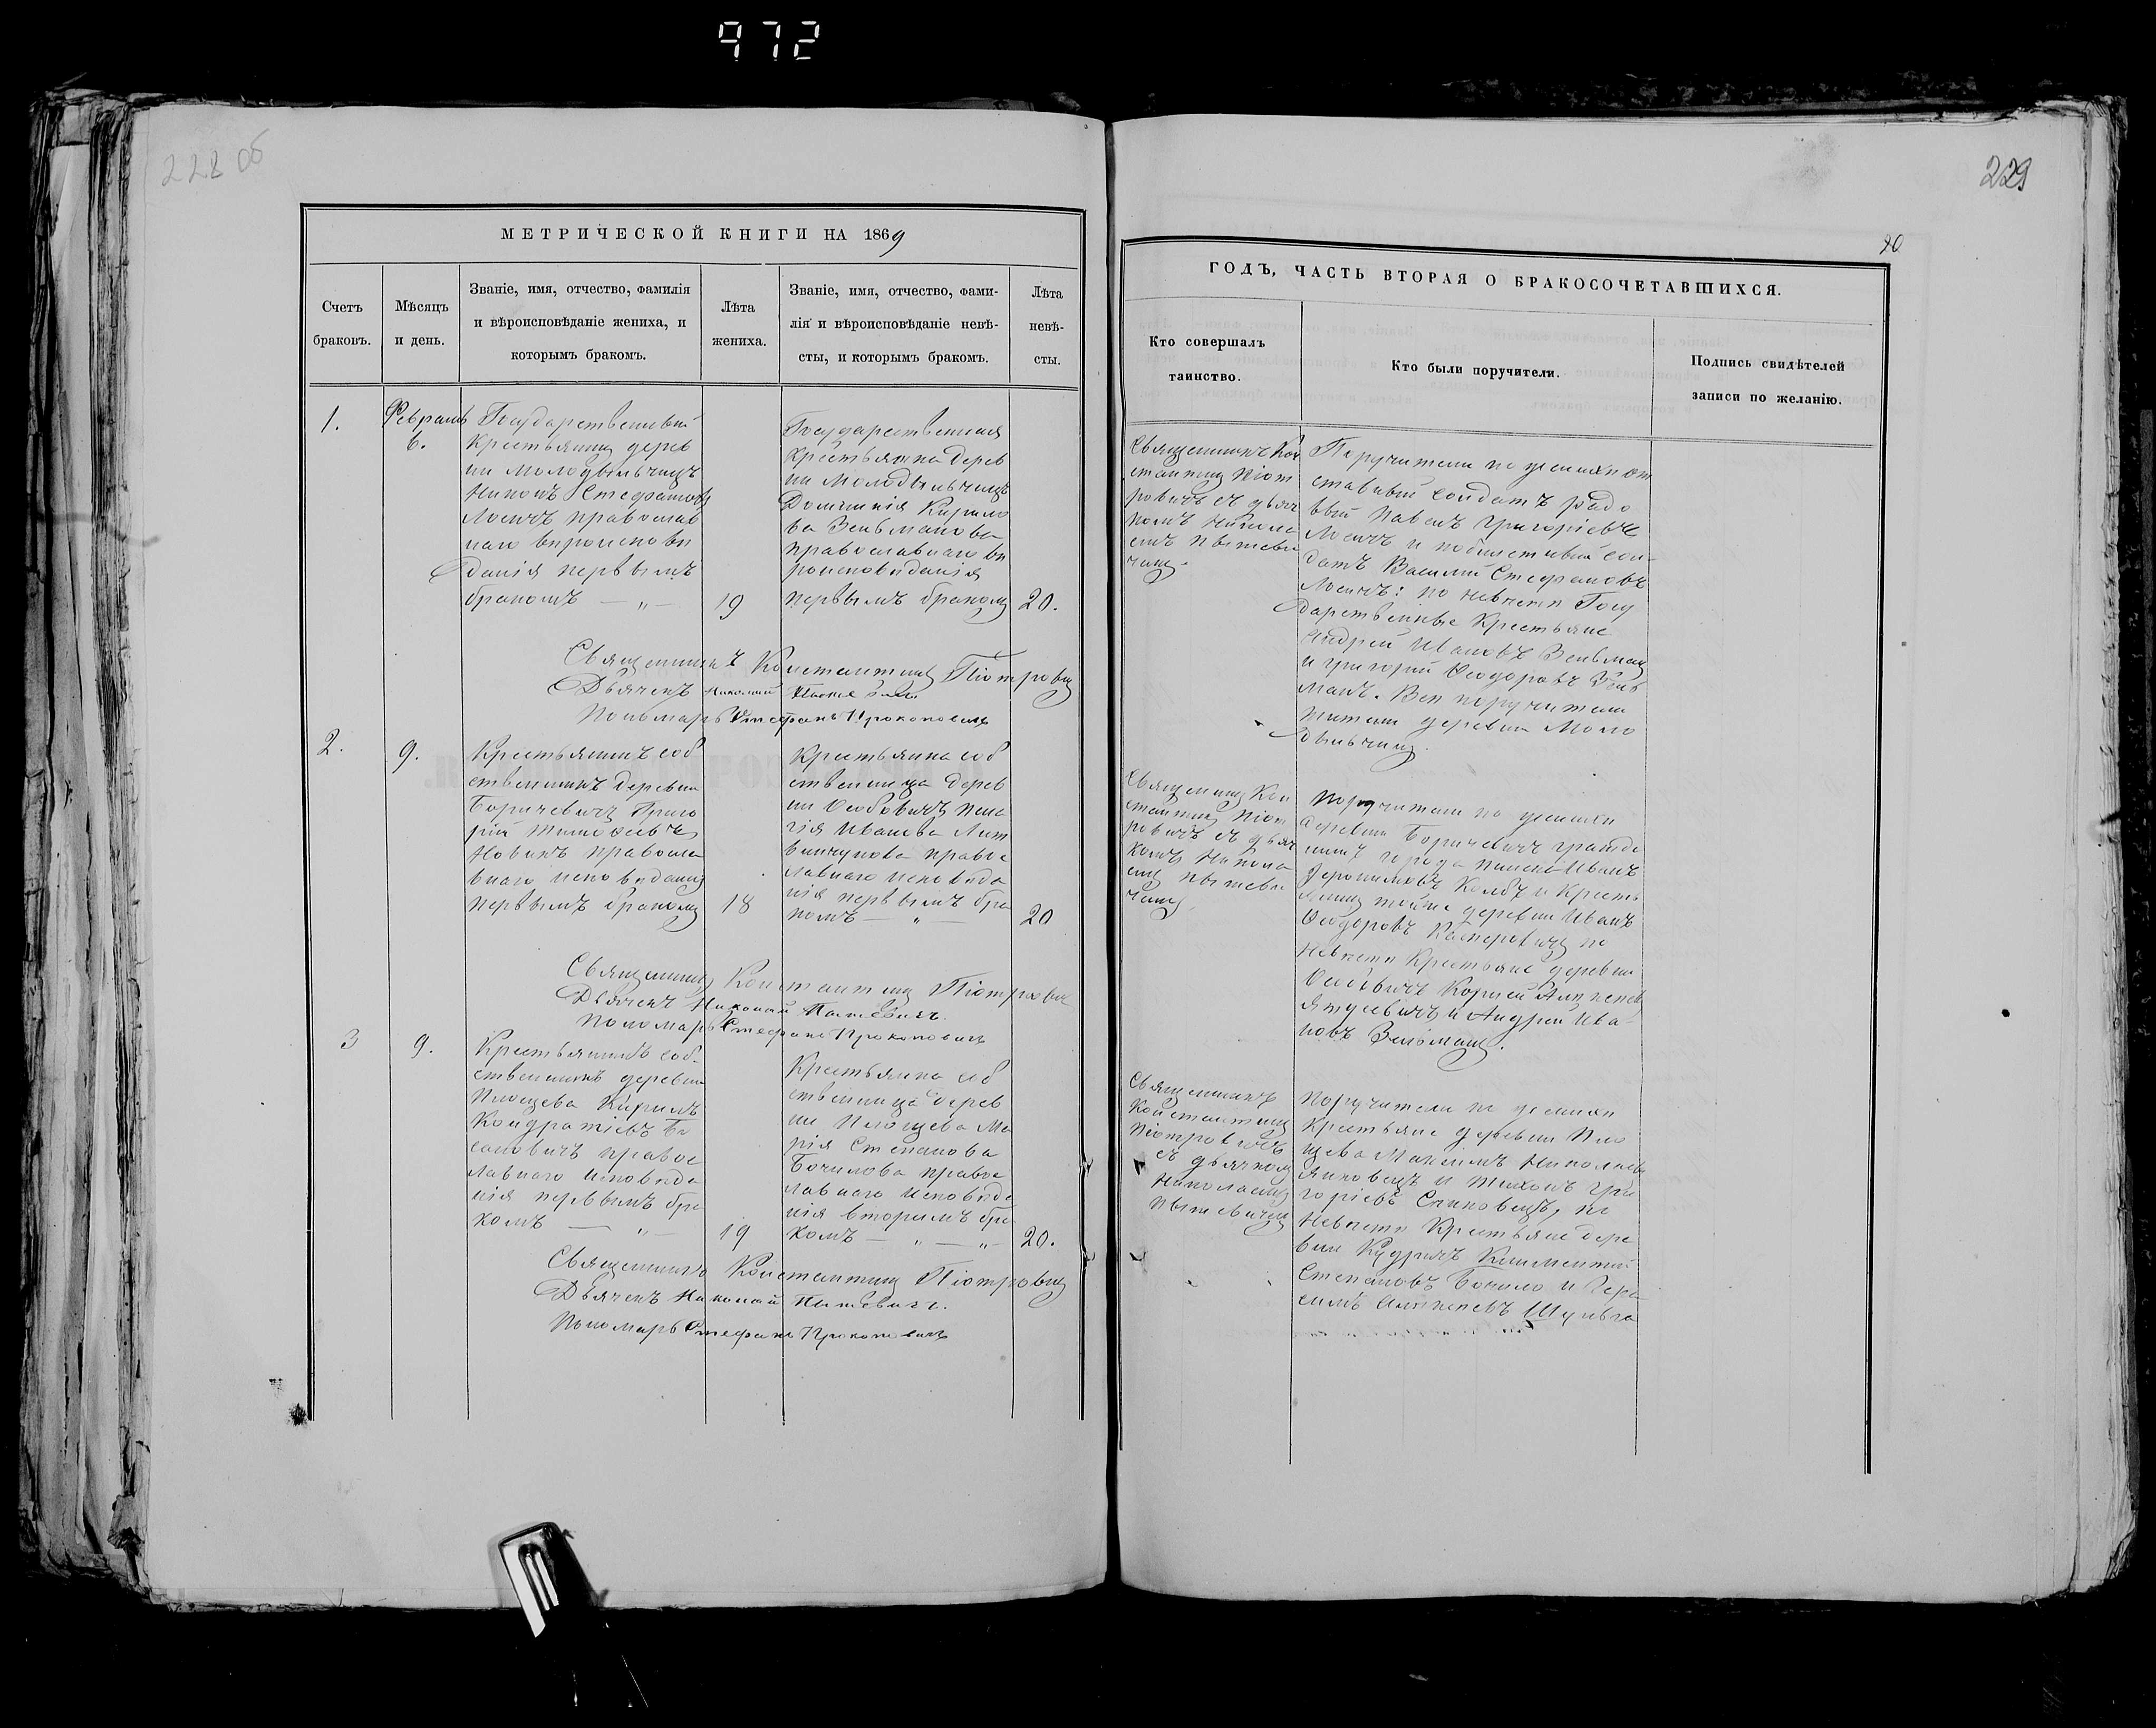 972
228 об
229
МЕТРИЧЕСКОЙ КНИГИ НА 1869
Счетъ браковъ.
Мѣсяцъ и день.
Званіе, имя, отчество, фамилія
и вѣроисповѣданіе жениха, и
которымъ бракомъ.
Лѣта жениха.
Званіе, имя, отчество, фами-
лія и вѣроисповѣданіе невѣ-
сты, и которымъ бракомъ.
Лѣта невѣ-
сты.
1.
Февраль
6.
Государственный
крестьянинъ дерев
ни Молодѣльчицъ
Никонъ Стефановъ
Лосичъ православ
наго вѣроисповѣ
данія первымъ
бракомъ — „ —
19
Государственная
крестьянка дерев
ни Молодѣльчицъ
Домникія Кирило
ва Зеньманова
православнаго вѣ
роисповѣданія
первымъ бракомъ
20.
Священникъ Константинъ Піотровичъ
Дьячекъ Николай
Пономарь Стефанъ Прокоповичъ
2.
9.
Крестьянинъ соб
ственникъ деревни
Боричевичъ Григо
рій Тимофеевъ
Новикъ правосла
внаго исповѣданія
первымъ бракомъ
18
Крестьянка соб
ственница дерев
ни Особовичъ Пела
гія Иванова Лит
винчукова правос
лавнаго исповѣда
нія первымъ бра
комъ — „ —
20
Священникъ Константинъ Піотровичъ
Дьячекъ Николай Пытевичъ.
Пономарь Стефанъ Прокоповичъ
3
9.
Крестьянинъ соб
ственникъ деревни
Площева Кирилъ
Кондратіевъ Бо
сановичъ правос
лавнаго исповѣда
нія первымъ бра
комъ — „ —
19
Крестьянка соб
ственница дерев
ни Площева Ма
рія Степанова
Бочилова правос
лавнаго исповѣда
нія вторымъ бра
комъ — „ — „
20.
Священникъ Константинъ Піотровичъ
Дьячекъ Николай Пытевичъ.
Пономарь Стефанъ Прокоповичъ
90
ГОДЪ, ЧАСТЬ ВТОРАЯ О БРАКОСОЧЕТАВШИХСЯ.
Кто совершалъ
таинство.
Кто были поручители.
Подпись свидѣтелей
записи по желанію.
Священникъ Кон
стантинъ Піот
ровичъ съ дьяч
комъ Никола
емъ Пытеви
чемъ.
Поручители по женихѣ от
ставный солдатъ рядо
вый Павелъ Григоріевъ
Лосичъ и солдатъ
Василій Стефановъ
Лосичъ: по невѣстѣ Госу
дарственные Крестьяне
Андрей Ивановъ Зеньманъ
и Григорій Ѳеодоровъ Зень
манъ. Всѣ поручители
жители деревни Моло
дѣльчицъ.
Священникъ Кон
стантинъ Піот
ровичъ съ дьяч
комъ Никола
емъ Пытеви
чемъ
Поручители по женихѣ
деревни Боричевичъ гражда
нинъ города Пинска Иванъ
Іеронимовъ Колбъ и Кресть
янинъ тойже деревни Иванъ
Ѳеодоровъ Касперовичъ по
невѣстѣ Крестьяне деревни
Особовичъ Корнѣй
и Андрей Ива
новъ Зеньманъ.
Священникъ
Константинъ
Піотровичъ
съ дьячкомъ
Николаемъ
Пытевичемъ
Поручители по женихѣ
Крестьяне деревни Пло
щева Максимъ Николаевъ
Янковецъ и Тихонъ Гри
горіевъ Спиковецъ, по
невѣстѣ Крестьяне дере
вни Кудричъ Климентій
Степановъ Бочило и Гера
симъ Шульга